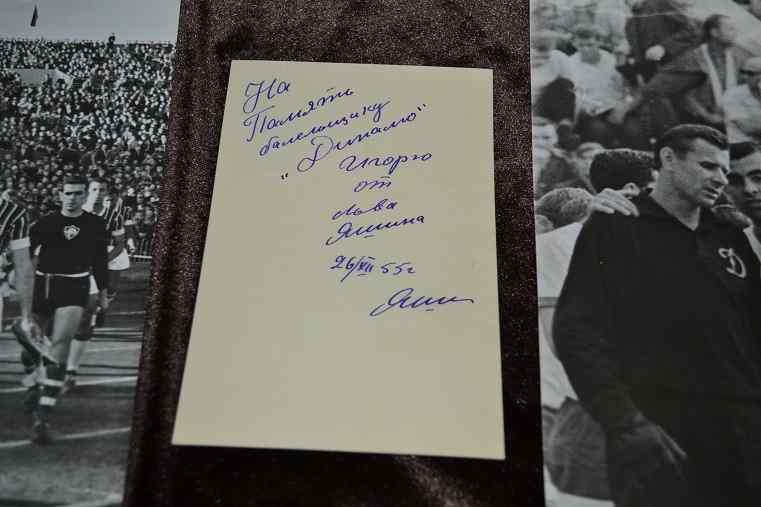 На
Память
балельщику
"Динамо"
Игорю
от
Льва
Яшина
26/XII 55г
Яши
Д